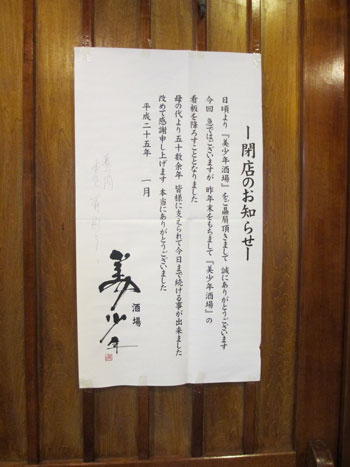 ー閉店のお知らせー
日頃より『美少年酒場』をご贔屓頂きまして 誠にありがとうございます
今回 急ではございますが 昨年末をもちまして『美少年酒場』の
看板を降ろすこととなりました
母の代より五十数余年 皆様に支えられて今日まで続ける事が出来ました
改めて感謝申し上げます 本当にありがとうございました
平成二十五年 一月
酒場
美少年